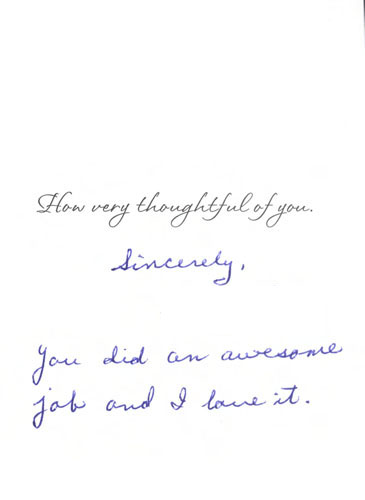 How very thoughtful of you.
Sincerely,
You did an awesome
job and I love it.